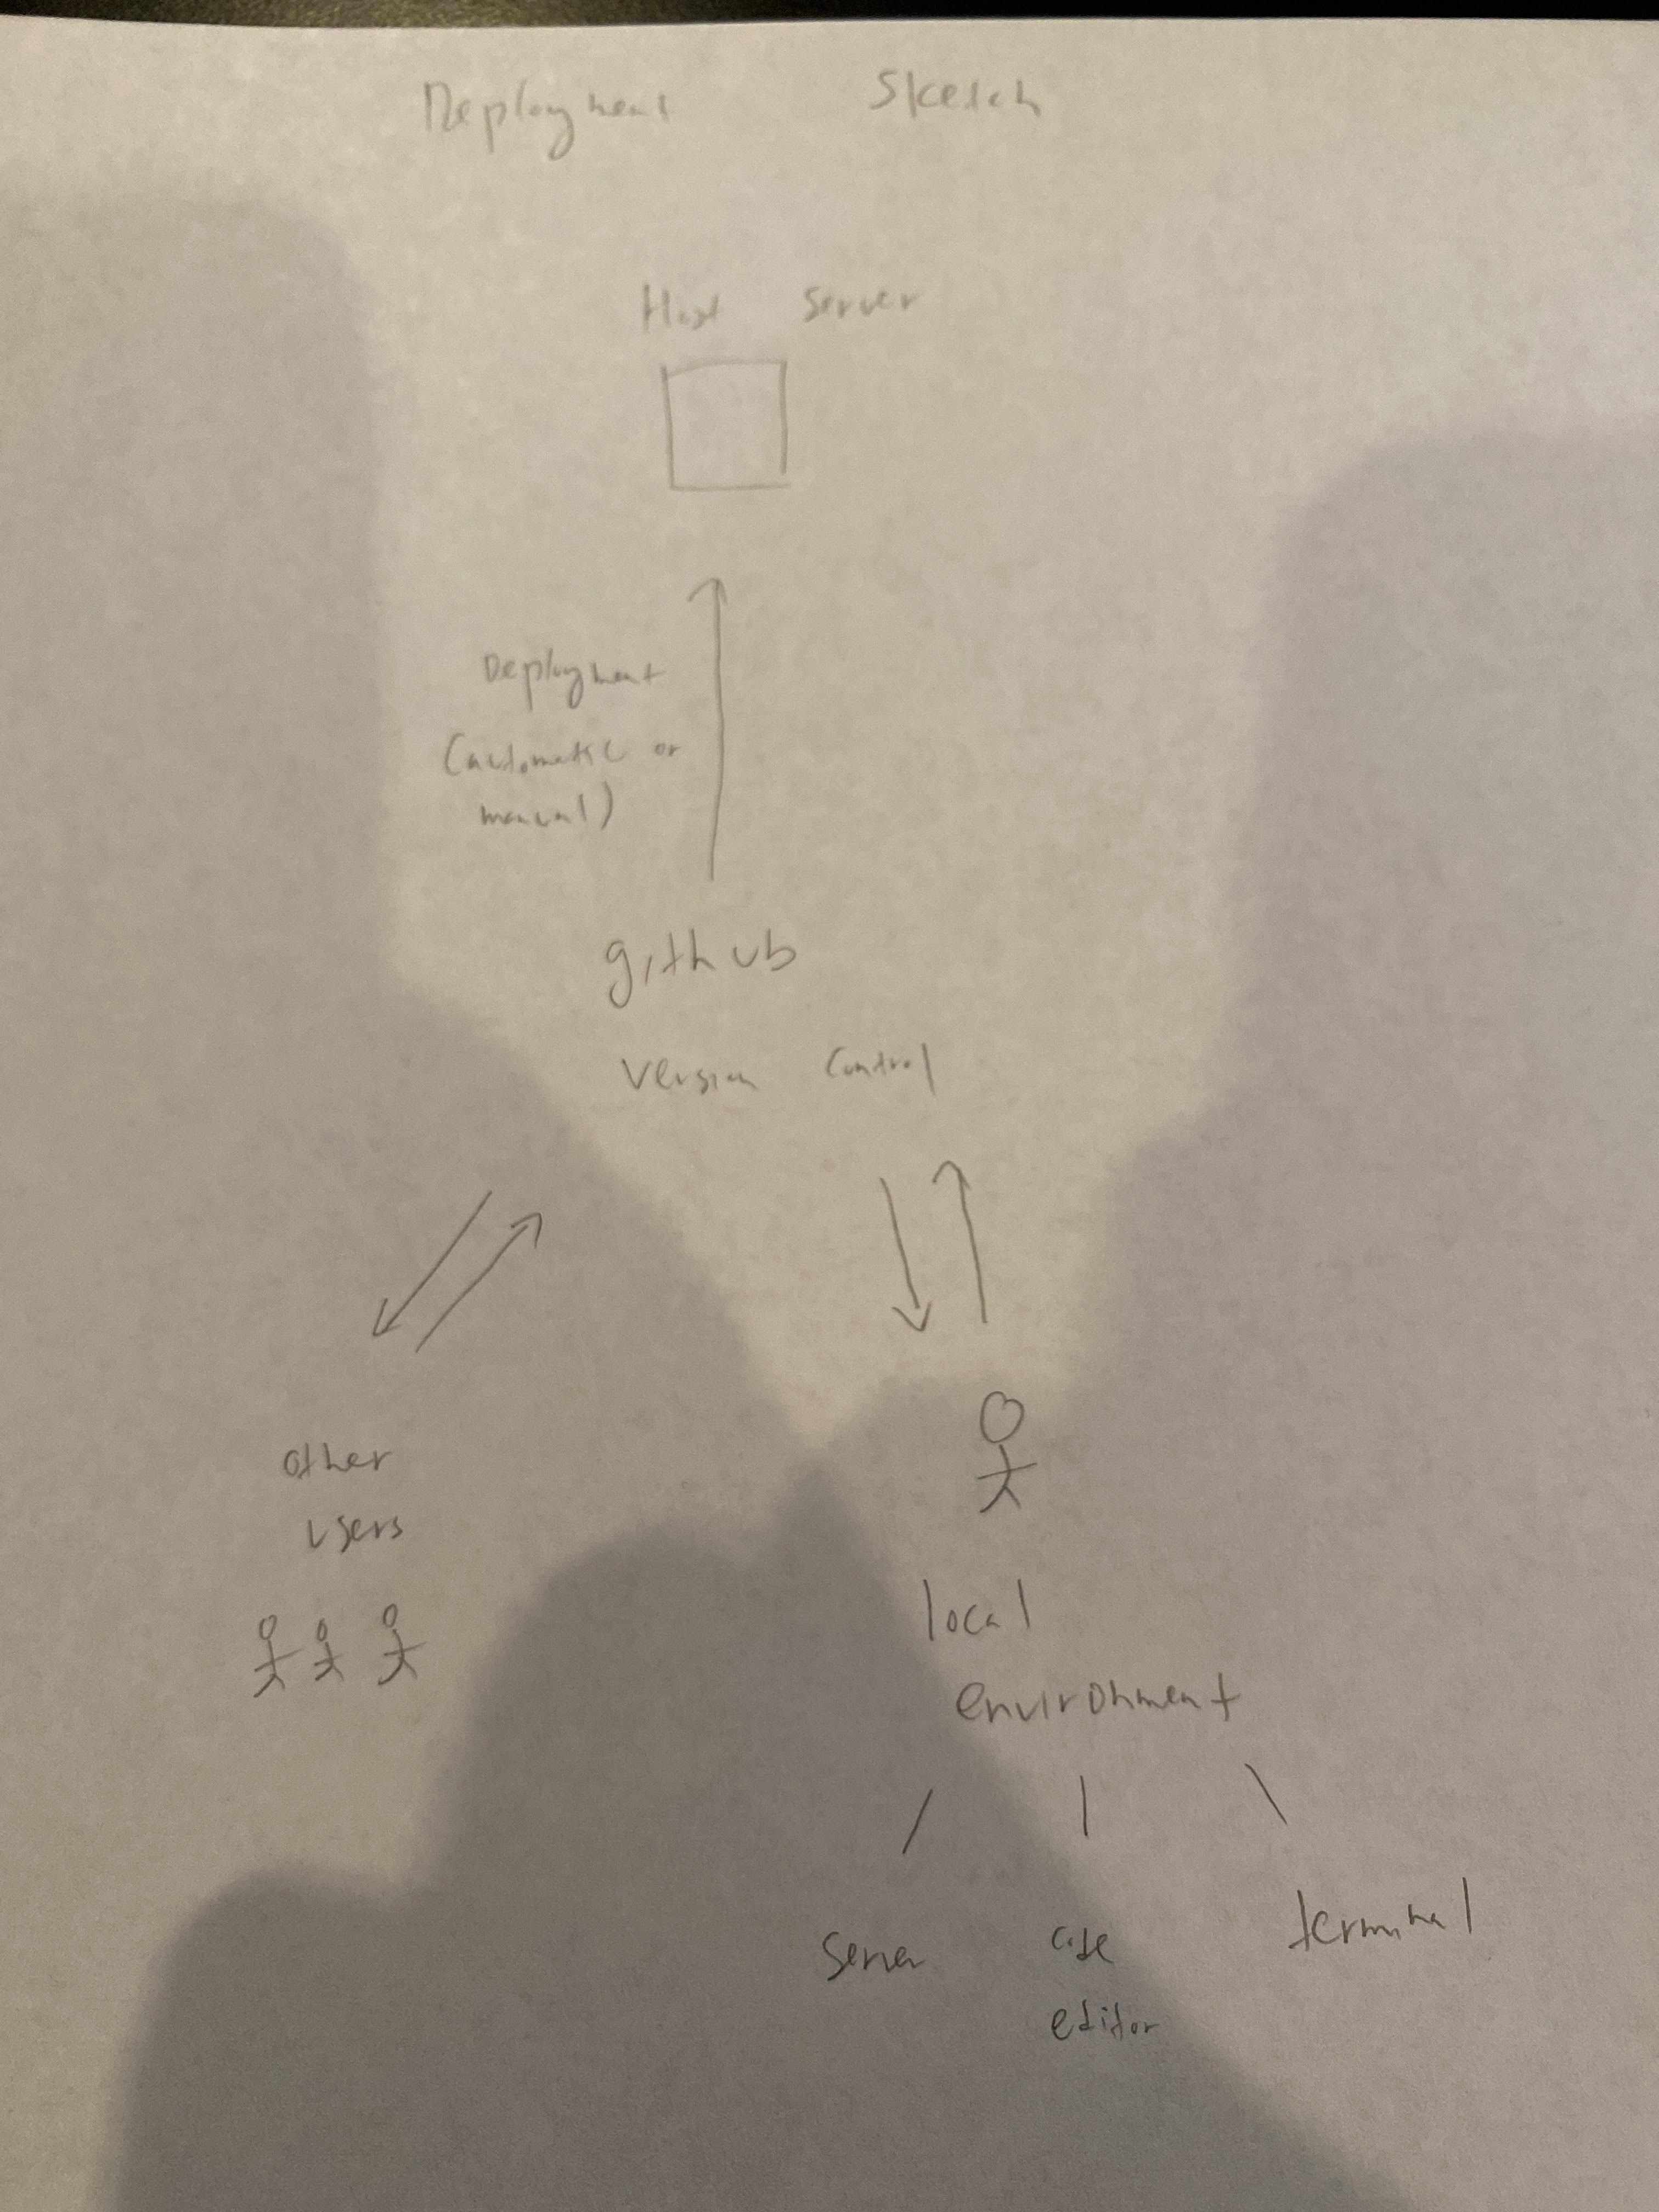 Deployment Sketch
Host Server
Deployment
(automatic or
manual)
github
version control
other
users
local
environment
server
code
editor
terminal